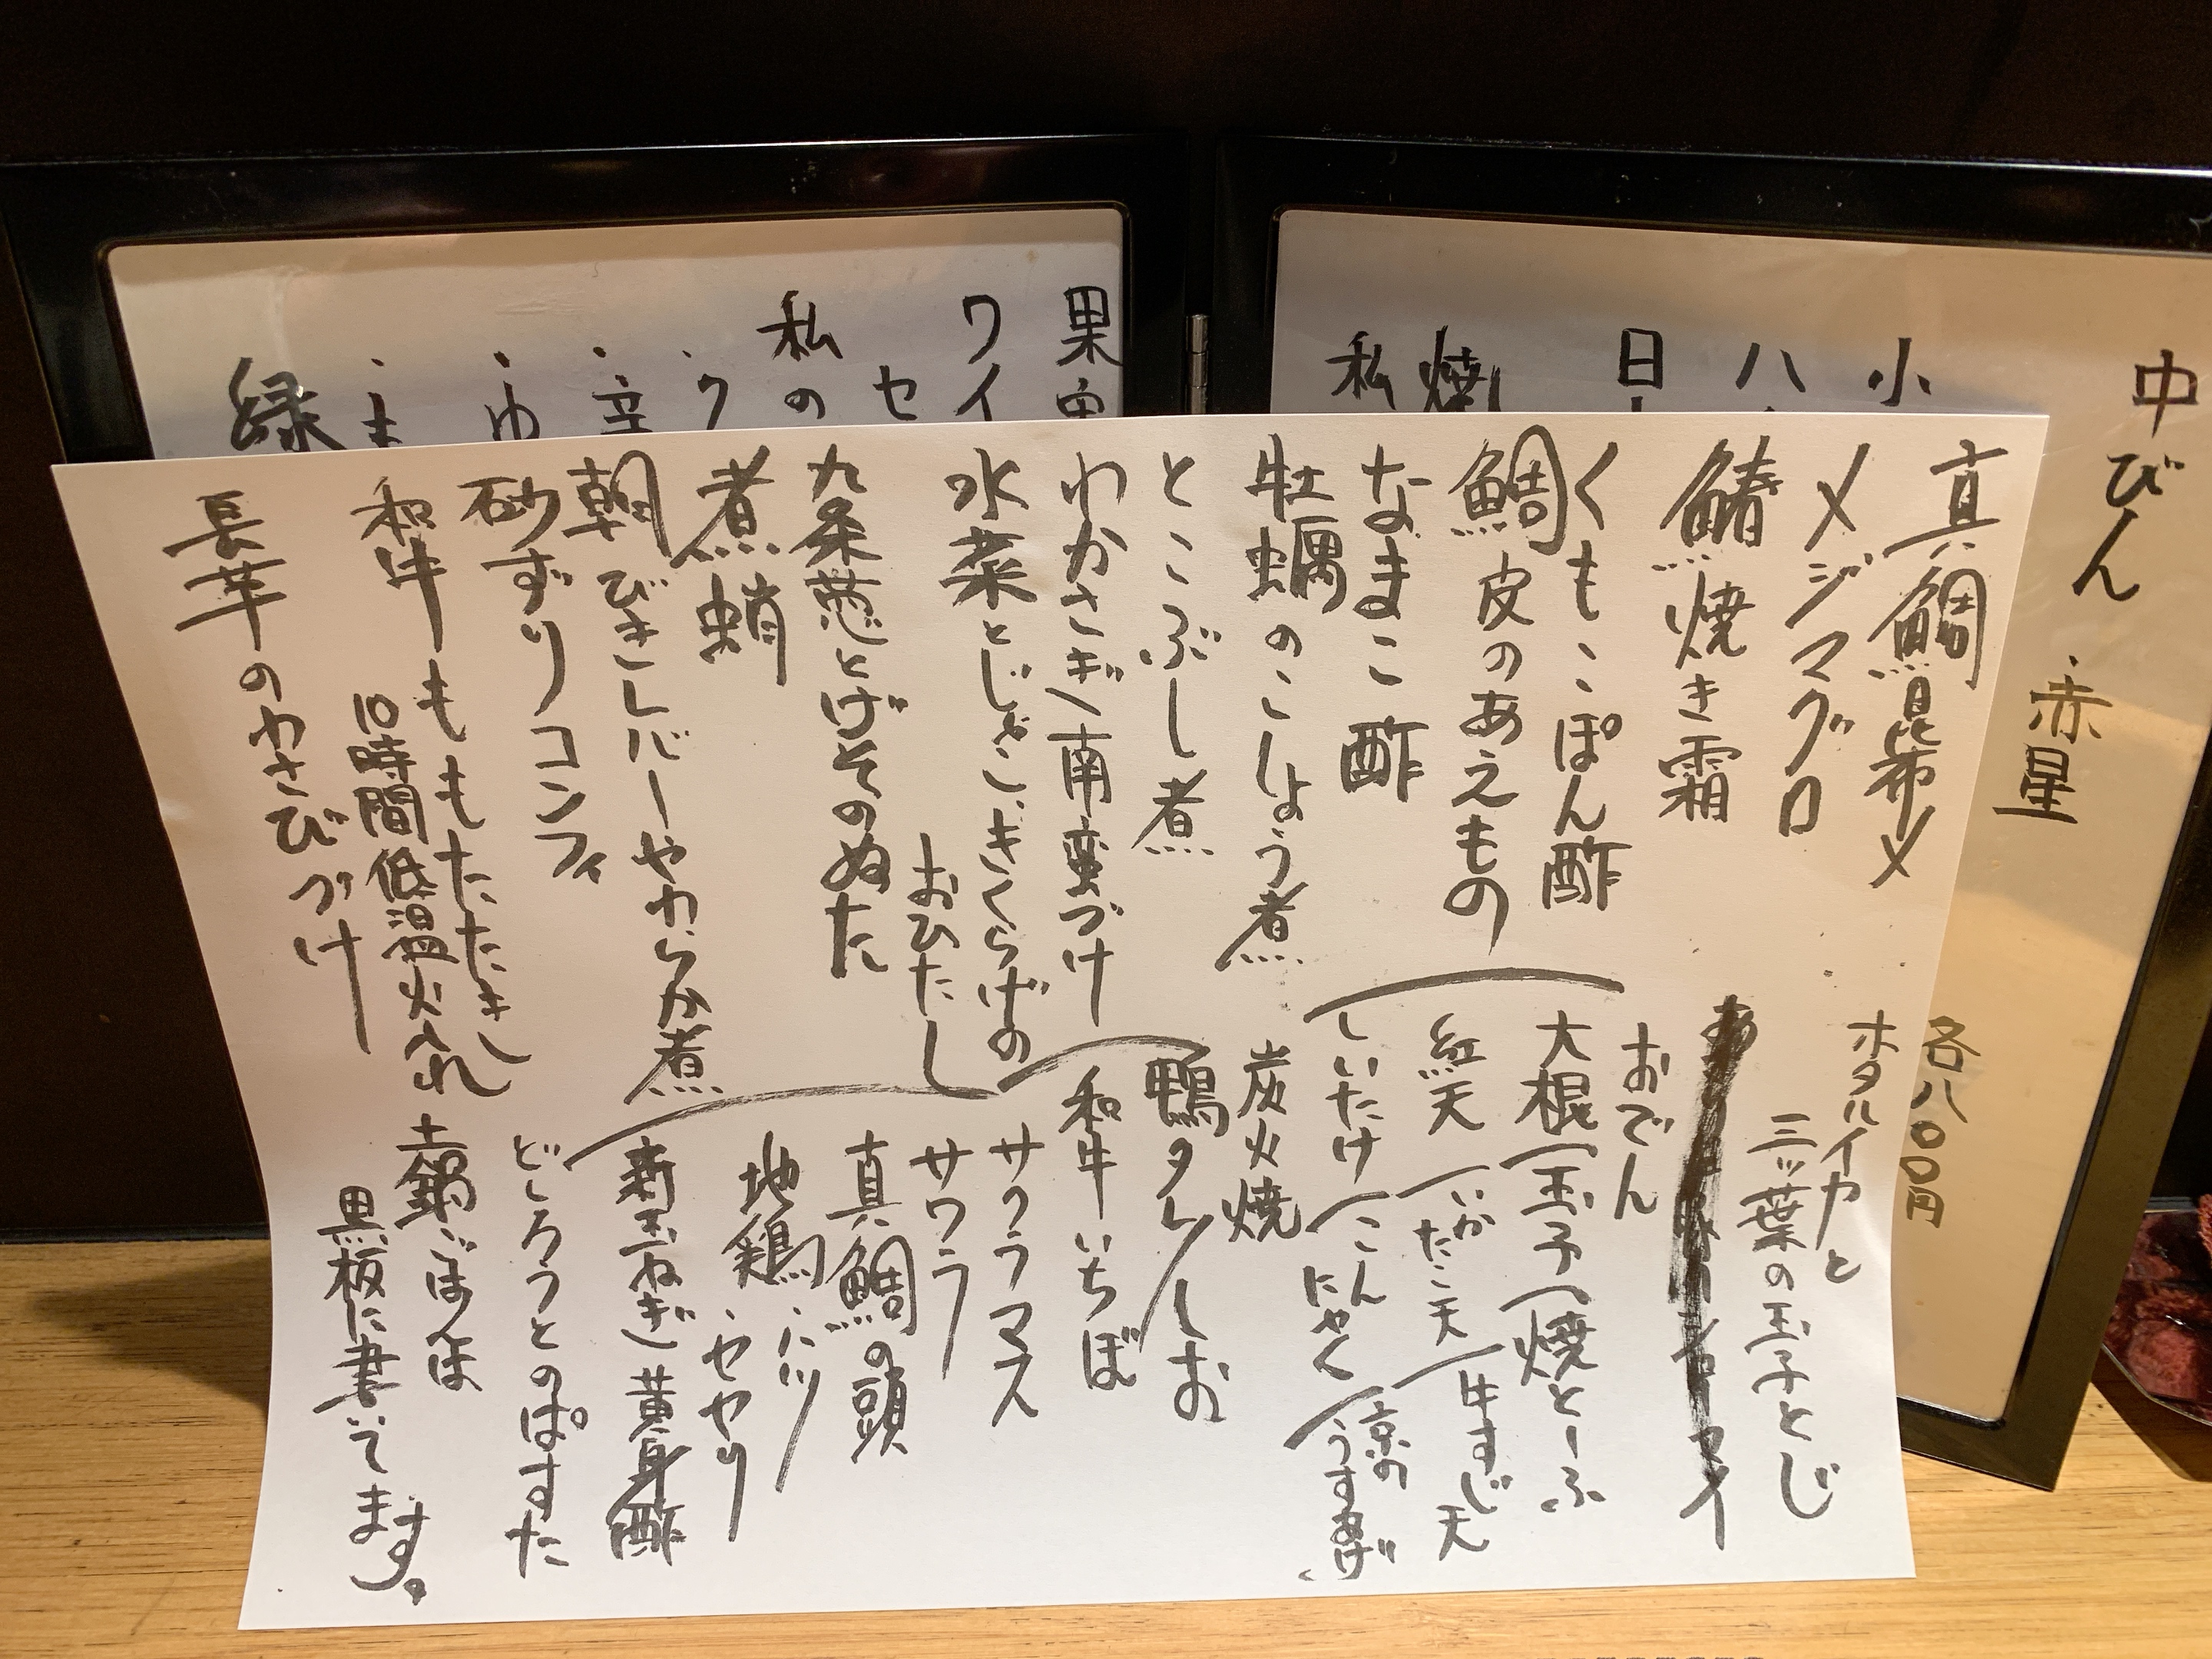 中びん
・赤星
各八〇〇円
小
八
日
焼
私
果実
ワイ
セ
私の
・ウ
・辛
・ゆ
・ま
緑
真鯛昆布〆
メジマグロ
鰆焼き霜
くもこぽん酢
鯛皮のあえもの
なまこ酢
牡蠣のこしょう煮
とこぶし煮
わかさぎ南蛮づけ
水菜とじゃこときくらげの
おひたし
九条葱とげそのぬた
煮蛸
朝びきレバーやわらか煮
砂ずりコンフィ
和牛ももたたき
10時間低温火入れ
長芋のわさびづけ
ホタルイカと
三ッ葉の玉子とじ
おでん
大根/玉子/焼とーふ
紅天/いかたこ天/牛すじ天
しいたけ/こんにゃく/京のうすあげ
炭火焼
鴨タレ/しお
和牛いちぼ
サクラマス
サワラ
真鯛の頭
地鶏・ハツ/
・ややり
新玉ねぎ黄身酢
どろっとのぽすた
土鍋ごはんは
黒板に書いてます。